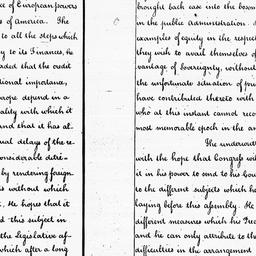 ce of European powers
s of america. The
to all the steps which
y to its Finances, he
aded that the credit
tional importance,
rope depend in a
ality with which it
and that it has al-
ual delays of the re-
onsiderable detri-
by rendering foreign
s without which
. He hopes that it
d this subject in
the Legislative af-
which after a long
brought back ease into the bosom
in the public administration.
examples of equity in the respect
they wish to avail themselves of
vantage of Sovereignty, without
the unfortunate situation of
have contributed thereto with
who at this instant cannot reco
most memorable epoch in the an
The underwrit
with the hope that Congress wi
it in his power to send to his Cou
to the different subjects which he
laying before this assembly. He
different measures which his
and he can only attribute to the
difficulties in the arrangement